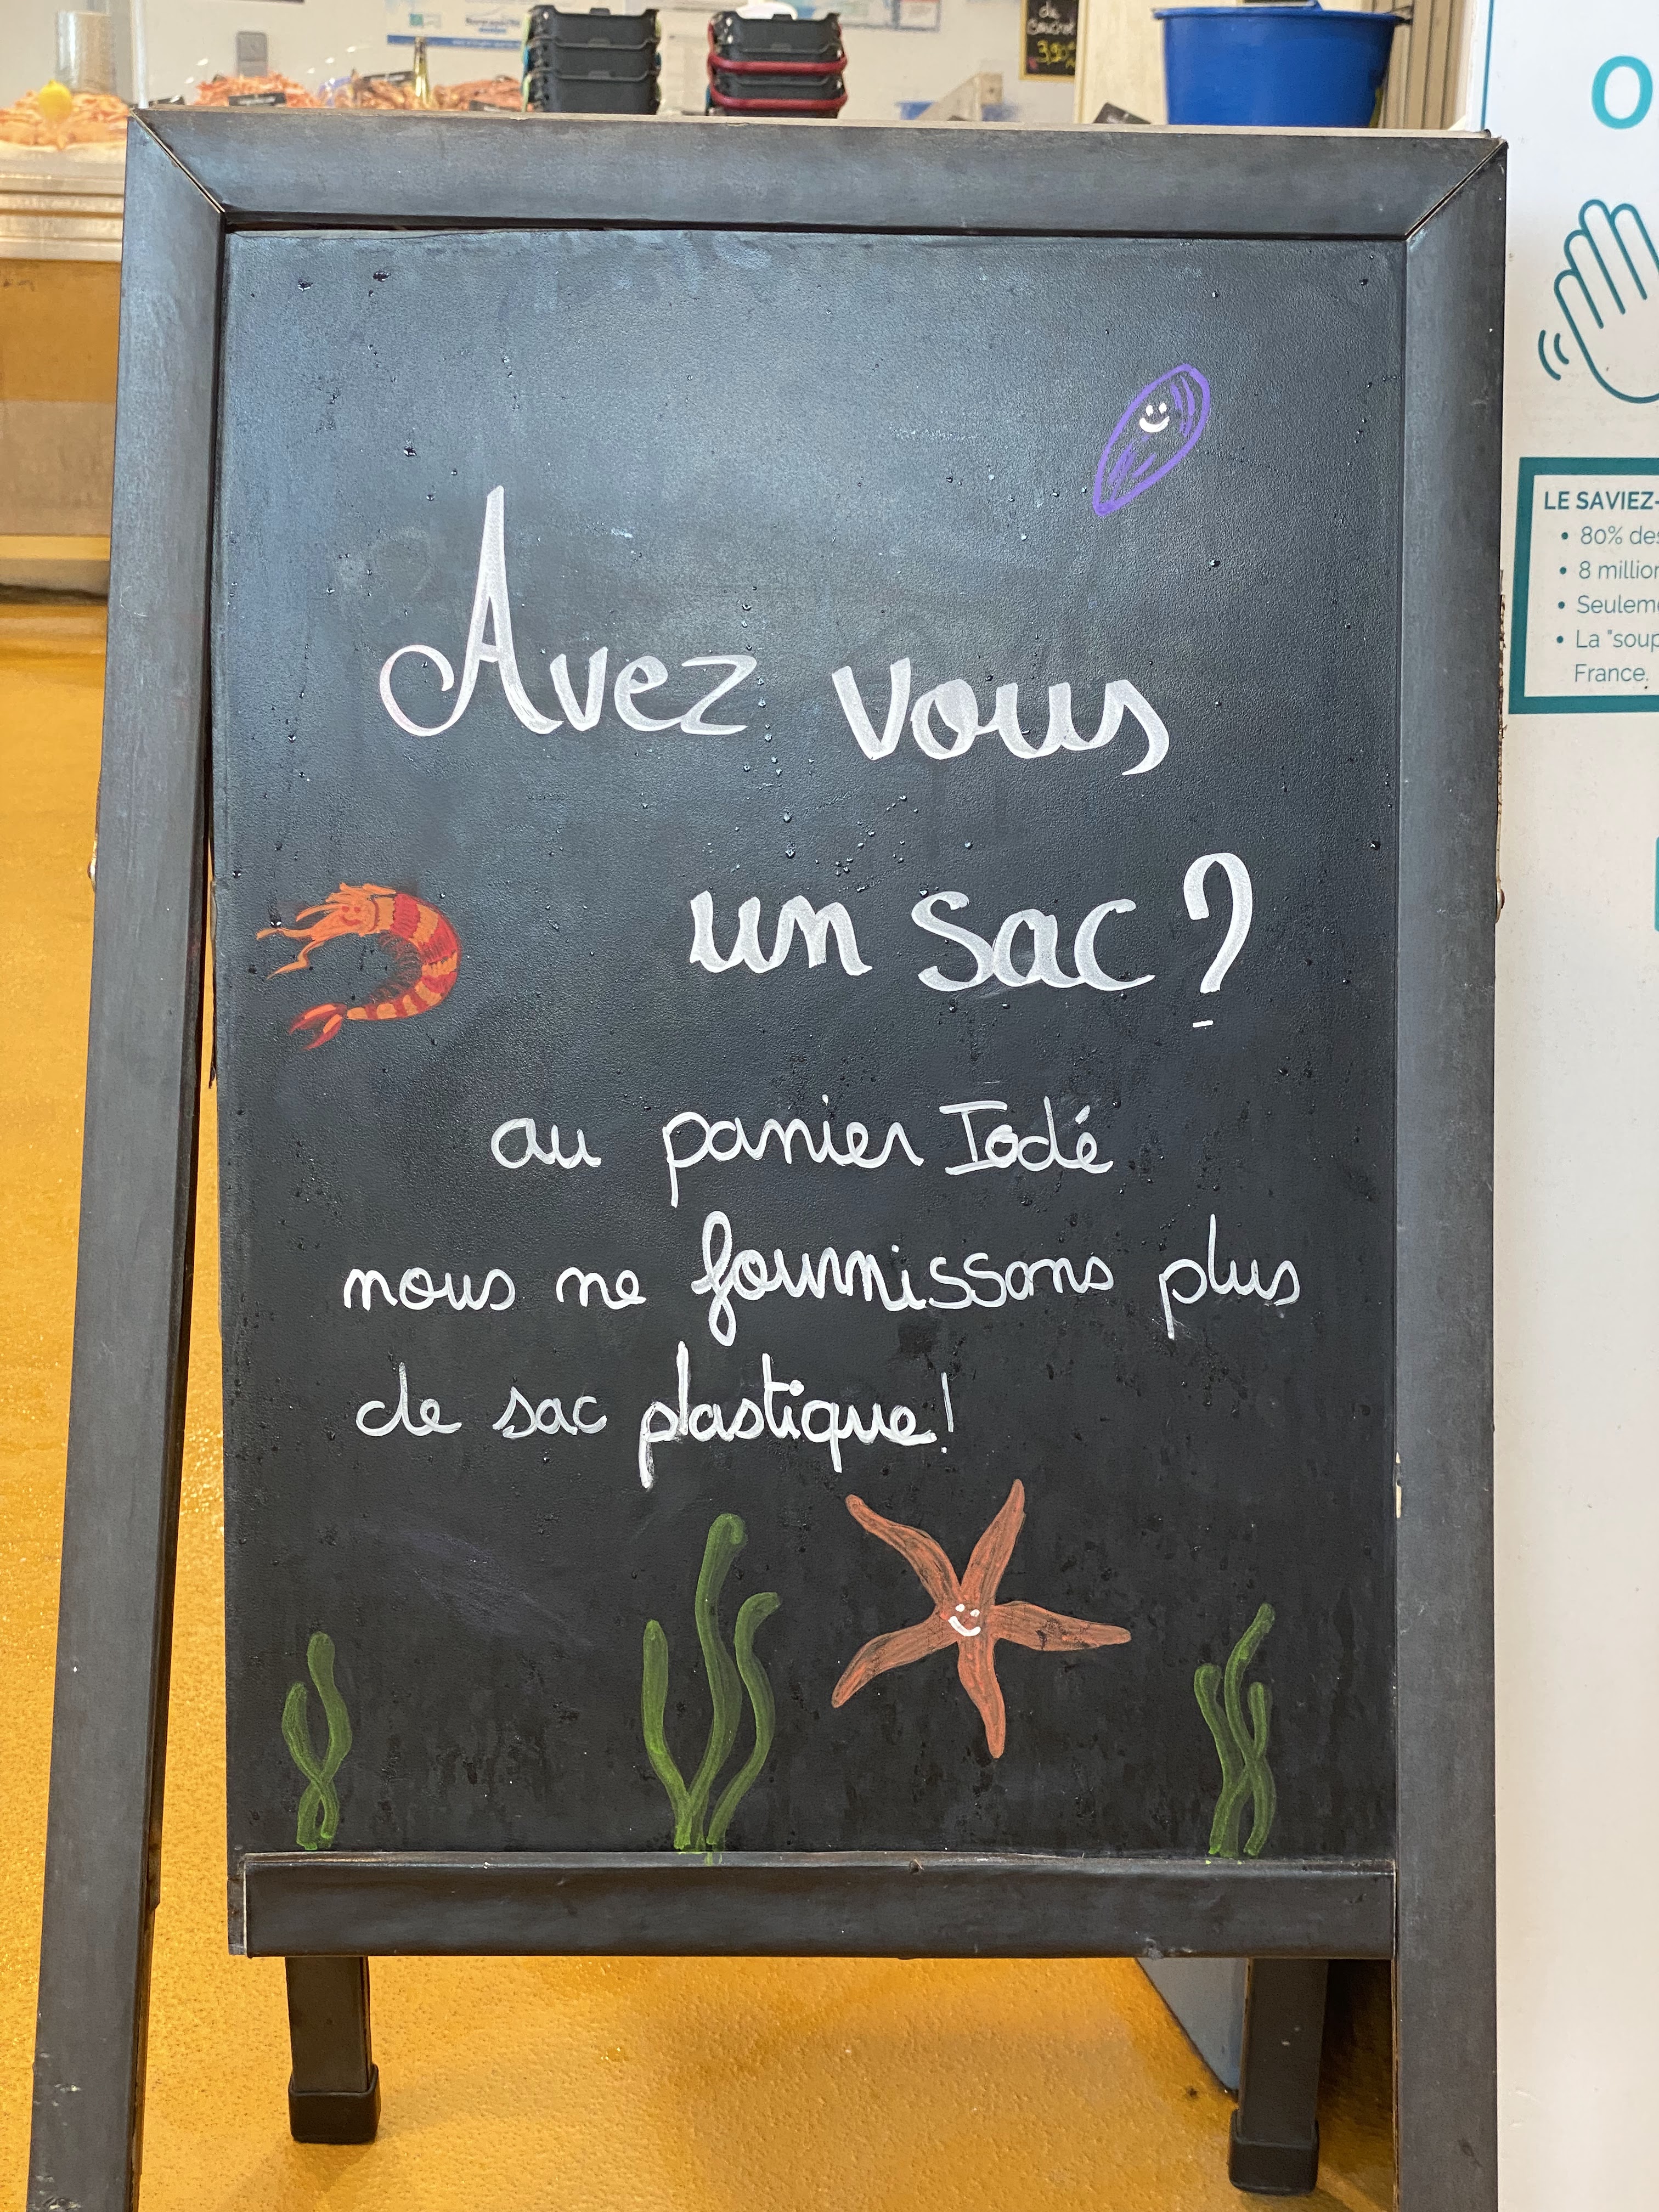 de
3,90
O
LE SAVIEZ-
• 80% des
• 8 million
• Seuleme
• La "soup
France.
Avez vous
un sac ?
au panier Iodé
nous ne fournissons plus
de sac plastique!